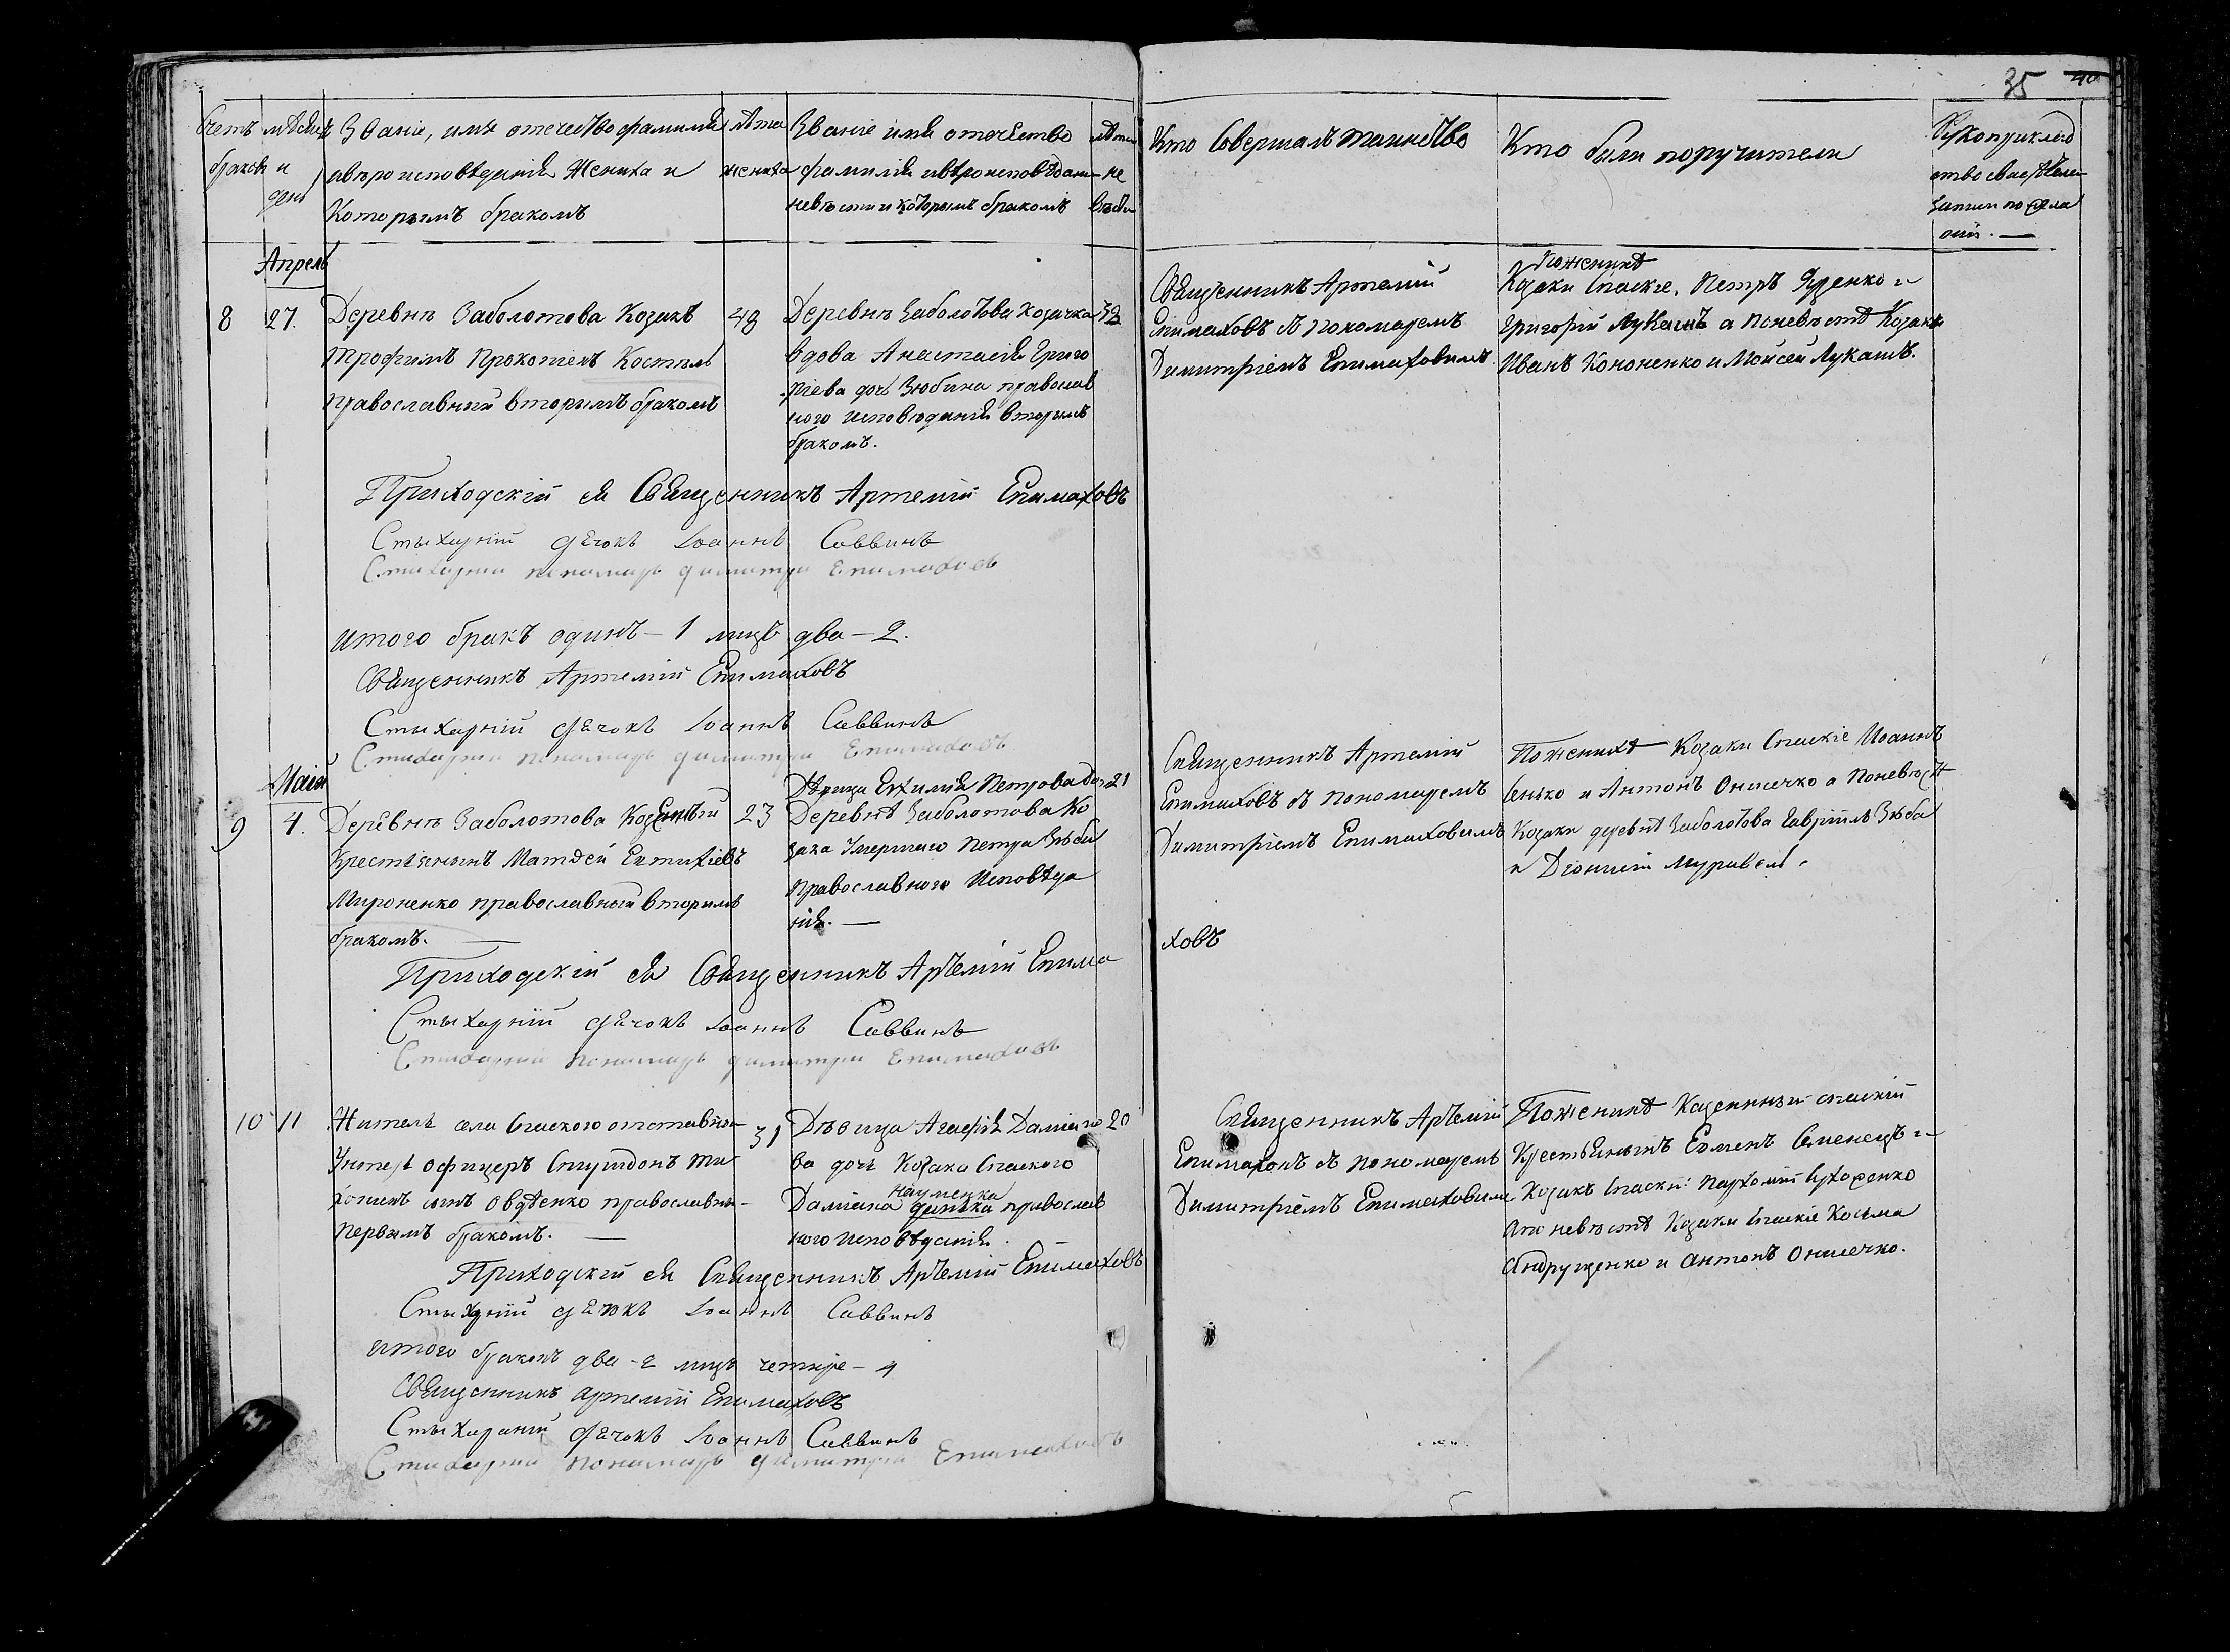 35
Счетъ браковъ
мѣсяцъ и день
Званіе, имя отечество фамилія
и вѣроисповѣданія Жениха и
Которымъ бракомъ
лѣта
жениха
Званіе имя отечество
фамилія и вѣроисповѣдан
невѣсты и которымъ бракомъ
лѣта
не
вѣсты
Кто Совершалъ таинство
Кто были поручители
Рукоприклад
ство свидѣтелей
записи по жела
нію. —
Апрель
8
27.
Деревнѣ Заболотова Козакъ
Трофимъ Прокопіевъ Костыль
православный вторымъ бракомъ
48
Деревнѣ Заболотова козачка
вдова Анастасія Григо
ріева дочь Зюбина православ
ного исповѣданія вторымъ
бракомъ.
Священникъ Артемій
Епимаховъ съ пономаремъ
Димитріемъ Епимаховимъ
По женихѣ
Козаки Спаскіе, Петръ Яценко и
Григорій Лукашъ а по невѣстѣ Козаки
Иванъ Кононенко и Моисей Лукашъ.
Приходскій ея Священникъ Артемій Епимаховъ
Стыхарній дячокъ Іоаннъ Саввинъ
Стихарній пономарь димитри Епимаховъ
итого бракъ одинъ — 1 лицъ два — 2.
Священникъ Артемій Епимаховъ
Стыхарній дячокъ Іоаннъ Саввинъ
Стихарній пономарь димитри Епимаховъ
Маія
9
4.
Деревнѣ Заболотова Козенный
Крестянинъ Матдей Евтихіевъ
Мироненко православный вторымъ
бракомъ. —
23
Дѣвица Евхимія Петрова доч
21
Деревнѣ Заболотова Ко
зака Умершаго Петра Зюби
православного Исповѣда
нія. —
Священникъ Артемій
Епимаховъ съ пономаремъ
Димитріемъ Епимаховимъ
По женихѣ Козаки Спаскіе Иоаннъ
Сенько и Антонъ Онисечко а по невѣстѣ
Козаки деревнѣ Заболотова Гавріилъ Зюба
и Діонисій Муравель.
Приходскій ея Священникъ Артемій Епима
ховъ
Стыхарній дячокъ Іоаннъ Саввинъ
Стихарній пономарь димитри Епимаховъ
10
11
Житель села Спаского отставны
Унтеръ офицеръ Спиридонъ Ти
хоновъ сынъ Овдѣенко православны
первымъ бракомъ. —
31
Дѣвица Агафія Даміано
20
ва дочь Козака Спаского
Науменка
Даміана православ
ного исповѣданія.
Священникъ Артемій
Епимаховъ съ пономаремъ
Димитріемъ Епимаховимъ
По женихѣ Казенныи спаскій
Крестянинъ Семенецъ и
Козакъ Спаскі: Пархомій Сухоренко
а по невѣстѣ Козаки Спаскіе Косьма
Андрущенко и Антонъ Онисечко.
Приходскій ея Священникъ Артемій Епимаховъ
Стыхарній дячокъ Іоаннъ Саввинъ
итого браковъ два - 2 лицъ четыре - 4
Священникъ Артемій Епимаховъ
Стыхарній дячокъ Іоаннъ Саввинъ
Стихарній пономарь димитри Епимаховъ